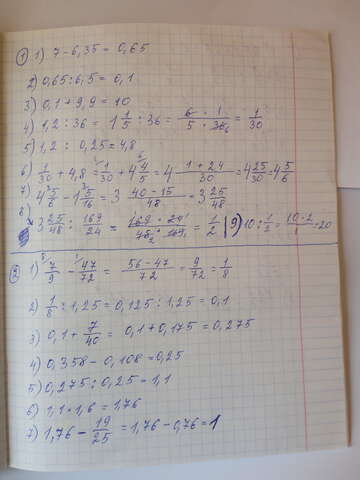 ① 1) 7 - 6,35 = 0,65
2) 0,65 : 6,5 = 0,1
3) 0,1 + 9,9 = 10
4) 1,2 : 36 = 1 1/5 : 36 = 6 · 1 / 5 · 36 6 = 1/30
5) 1,2 : 0,25 = 4,8
6) 1/30 + 4,8 = 1/30 + 4 4/5 = 4 1+24/30 = 4 25/30 = 4 5/6
7) 4 5/6 - 1 5/16 = 3 40-15/48 = 3 25/48
8) 3 25/48 : 169/24 = 169 · 24 / 48 2 · 169 = 1/2 | 9) 10 : 1/2 = 10·2/1 = 20
② 1) 7/9 - 47/72 = 56-47/72 = 9/72 = 1/8
2) 1/8 : 1,25 = 0,125 : 1,25 = 0,1
3) 0,1 + 7/40 = 0,1 + 0,175 = 0,275
4) 0,358 - 0,108 = 0,25
5) 0,275 : 0,25 = 1,1
6) 1,1 · 1,6 = 1,76
7) 1,76 - 19/25 = 1,76 - 0,76 = 1